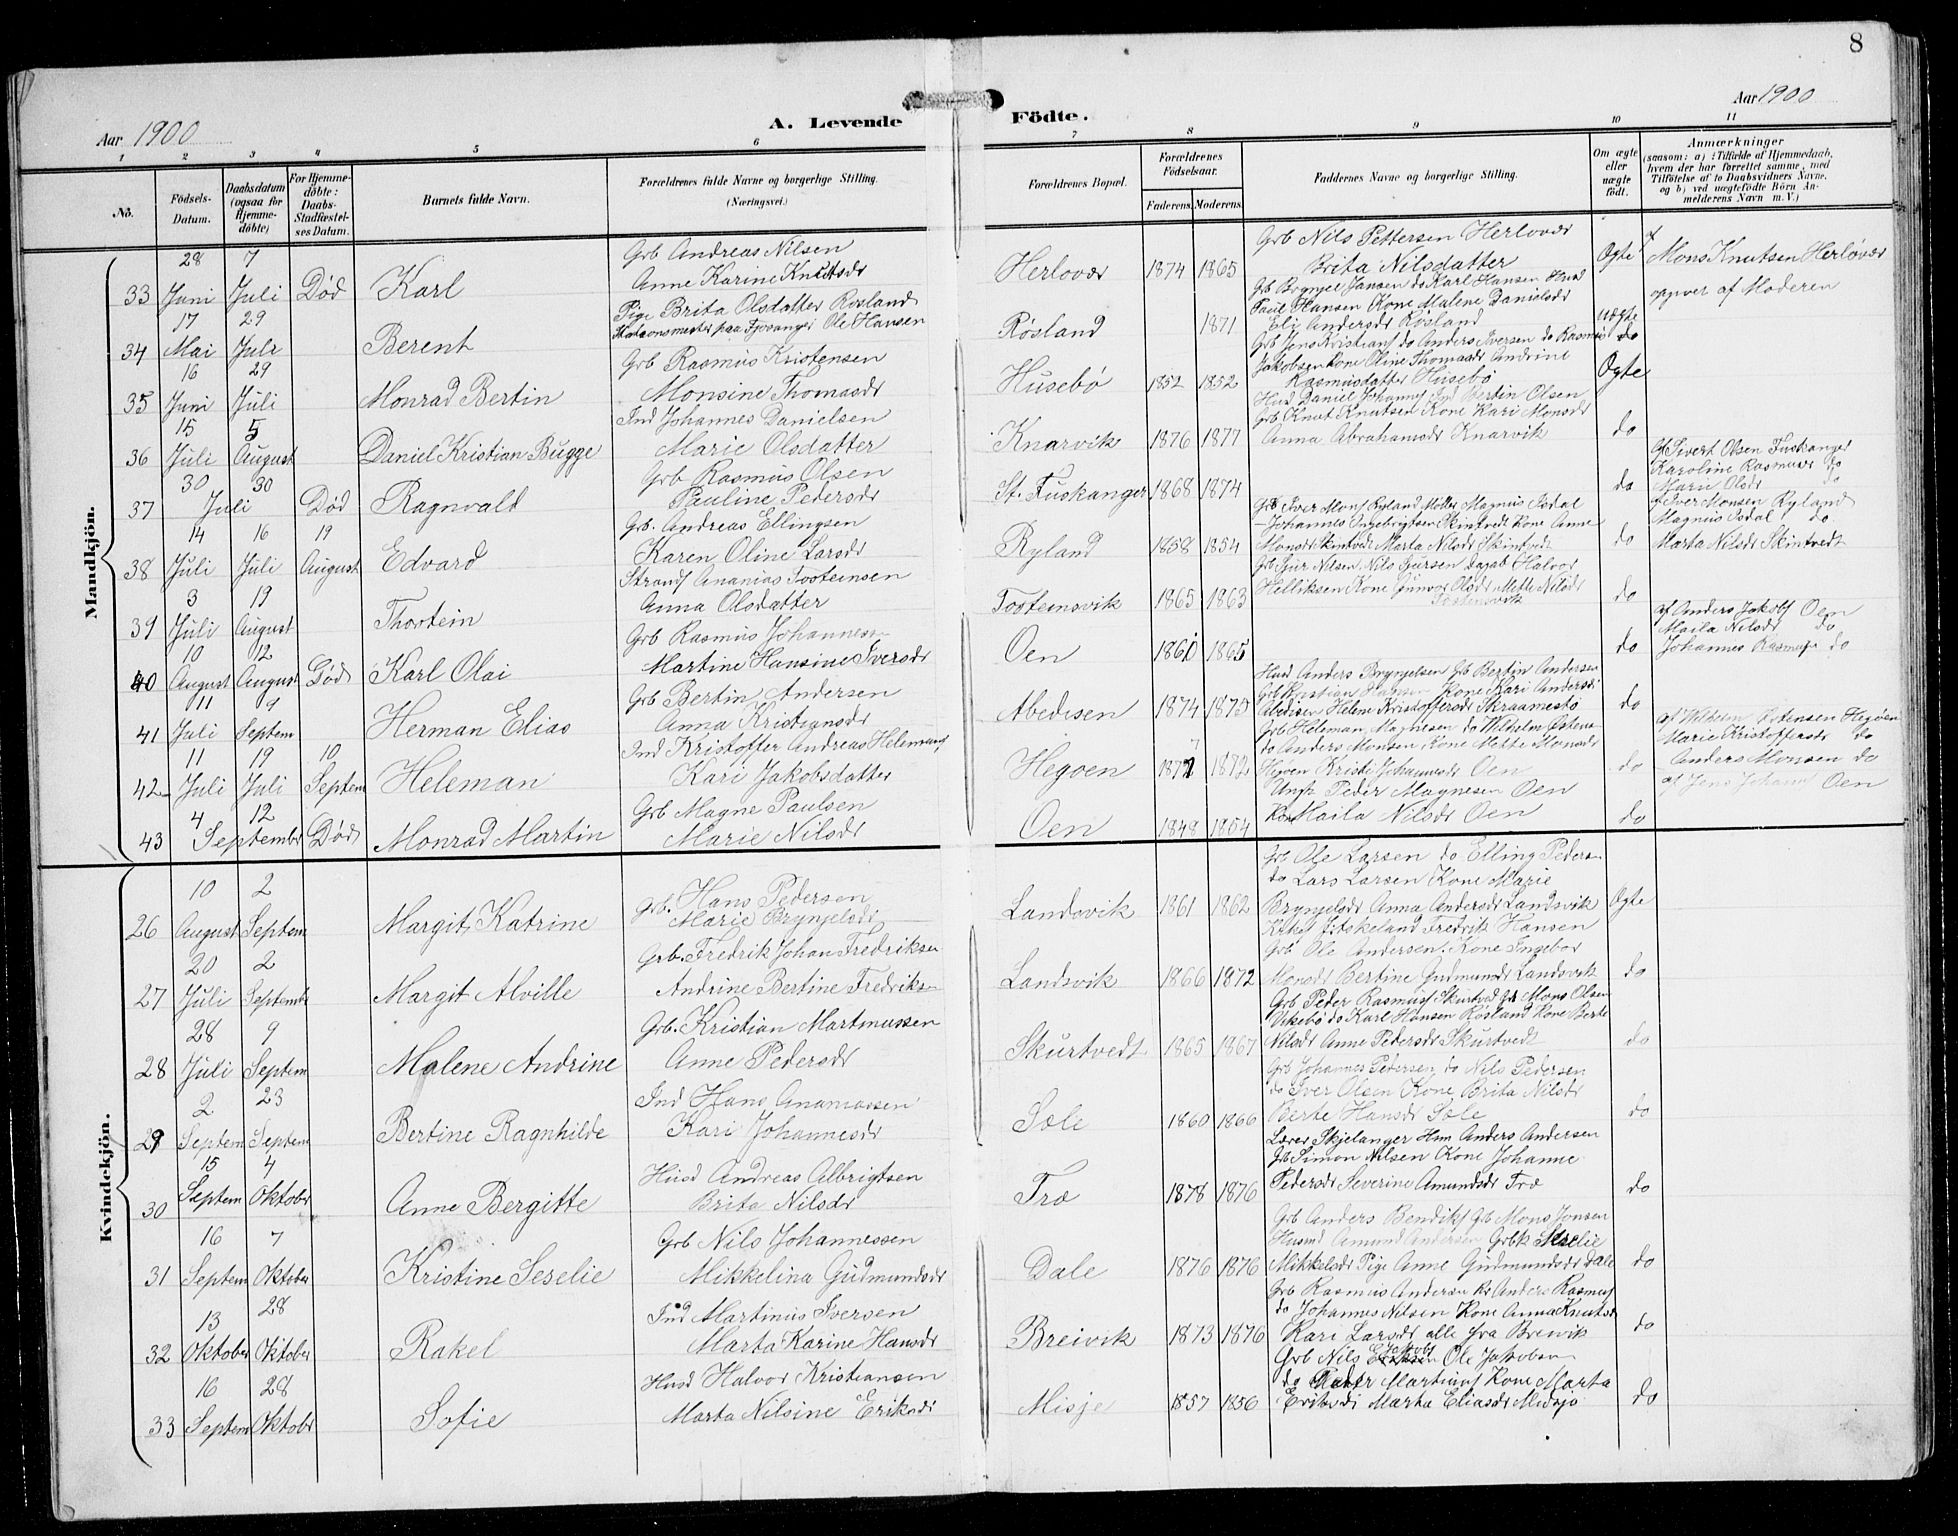 8
Aar 1900
A. Levende
Födte.
Aar 1900
1 2 3 4 5 6 7 8 9 10 11
No.
Födsels-
Datum.
Daabsdatum
(ogsaa for
Hjemme-
döbte)
For Hjemme-
döbte:
Daabs-
Stadfæstel-
ses Datum.
Barnets fulde Navn.
Forældrenes fulde Navne og borgerlige Stilling.
(Næringsvei.)
Forældrenes Bopæl.
Forældrenes
Födselsaar.
Faderens. Moderens.
Faddernes Navne og borgerlige Stilling.
Om ægte
eller
uægte
födt.
Anmærkninger
(saasom: a) i Tilfælde af Hjemmedaab,
hvem der har forrettet samme, med
Tilföielse af to Daabsvidners Navne,
og b) ved uægtefödte Börn An-
melderens Navn m. V.)
Mandkjön.
33 28 Juni 7 Juli Död Karl
Grb Andreas Nilsen
Anne Karine Knutsdr
Herlovær 1874 1865
Grb Nils Pettersen Herlovær
Brita Nilsdatter
Ogte
Mons Knutsen Herlövær
34 17 Mai 29 Juli Berent
Pige Brita Olsdatter Rosland
Stationsmester paa Fjosanger Ole Hansen
Røsland 1871
Grb Brynjel Jansen do Karl Hansen Husd
Paul Hansen Kone Malene Danielsdr
Eli Andersdr Røsland
uægte
do
oppver af Moderen
35 16 Juni 29 Juli Monrad Bertin
Grb Rasmus Kristensen
Monsine Thomasdr
Husebö 1852 1852
Grb Jens Kristians do Anders Iversen do Rasmus
Jakobsen Kone Oline Thomasdr Andrine
Rasmusdatter Husebö
Ogte
36 15 Juli 5 August Daniel Kristian Bugge
Ind Johannes Danielsen
Marie Olsdatter
Knarvik 1876 1877
Husd Daniel Johannes Ind Bertin Olsen
Grb Knut Knutsen Kone Kari Monsdr
Anna Abrahamsdr Knarvik
do
37 30 30 Juli Död Ragnvald
Grb Rasmus Olsen
Pauline Pedersdr
St. Fuskanger 1868 1874
do
af Sivert Olsen Fuskanger
Karoline Rasmusdr do
Mari Olsdr do
38 14 Juli 16 Juli 19 August Edvard
Grb. Andreas Ellingsen
Karen Oline Larsdr
Ryland 1858 1854
Grb Iver Mons Ryland Möller Magnus Isdal
Johannes Ingebrigtsen Skintvedt Kone Anne
Monsdr Skintvedt Marta Nilsdr Skintvedt
do
af Iver Monsen Ryland
Magnus Isdal do
Marta Nilsdr Skintvedt
39 3 Juli 19 August Thortein
Strands Ananias Tosteinsen
Anna Olsdatter
Tosteinsvik 1865 1863
Grb Gur Nilsen Nils Gursen Halvor
Helliksen Kone Gunvor Olsdr Mette Nilsdr
Tosteinsvik
do
40 10 August 12 August Död Karl Olai
Grb Rasmus Johannesn
Martine Hansine Iversdr
Oen 1861 1865
do
af Anders Jakobs Oen
Maila Nilsdr do
Johannes Rasmus do
41 11 Juli 9 Septem Herman Elias
Grb Bertin Andersen
Anna Kristiansdr
Abedisen 1874 1875
Husd Anders Brynjelsen Grb Bertin Andersen
Grb Kristian Hansen Kone Kari Andersd
Abedisen Helene Kristoffersdr Skraamestö
do
42 11 Juli 19 Juli 10 Septem Heleman
Ind Kristoffer Andreas Helemans
Kari Jakobsdatter
Hegöen 1877 1872
Grb Heleman Magnesen do Wilhelm Ostens
do Anders Monsen Kone Mette Monsdr
Hegöen Kristi Johannesdr Oen
do
af Wilhelm Ostensen Hegöen
Marie Kristoffersdr do
Anders Monsen do
43 4 12 September Död Monrad Martin
Grb Magne Paulsen
Marie Nilsdr
Oen 1849 1854
Ungk Peder Magnesen Oen
Kone Maila Nilsdr Oen
do
af Jens Johans Oen
Kvindekjön.
26 10 August 2 Septem Margit Katrine
Grb. Hans Pedersen
Marie Brynjelsdr
Landsvik 1861 1862
Grb Ole Larsen do Elling Peders
do Lars Larsen Kone Marie
Brynjelsdr Anna Andersdr Landsvik
Ogte
27 20 Juli 2 Septembr Margit Alville
Grb. Fredrik Johan Fredriksen
Andrine Bertine Fredriksn
Landsvik 1866 1872
Fredrik Hansen
Grb Ole Andersen. Kone Ingebor
Monsdr Bertine Gudmundsdr Landsvik
do
28 28 Juli 9 Septem Malene Andrine
Grb. Kristian Martinussen
Anne Pedersdr
Skurtvedt 1865 1867
Grb Peder Rasmus Skurtved Grb Mons Olsen
Vikebö do Karl Hansen Rösland Kone Berte
Nilsdr Anne Pedersdr Skurtvedt
do
29 2 Septem 23 Septem Bertine Ragnhilde
Ind Hans Anamassen
Kari Johannesdr
Sæle 1860 1866
Grb Johannes Pedersen do Nils Pedersen
do Iver Olsen Kone Brita Nilsdr
Berte Hansdr Sæle
do
30 15 Septem 4 Oktober Anne Bergitte
Husd Andreas Albrigtsen
Brita Nilsdr
Træ 1878 1876
Lærer Skjelanger Hsm Anders Andersen
Grb Simon Nilsen Kone Johanne
Pedersdr Severine Amundsdr Træ
do
31 16 Septem 7 Oktober Kristine Seselie
Grb Nils Johannessen
Mikkelina Gudmundsdr
Dale 1876 1876
Grb Anders Bendiks Grb Mons Jonsen
Husmd Amund Andersen Grbk Seselie
Mikkelsdr Pige Anne Gudmundsdr Dale
do
32 13 Oktober 28 Oktober Rakel
Ind Martinus Iversen
Marta Karine Hansdr
Breivik 1873 1876
Grb Rasmus Andersen Anders Rasmus
do Johannes Nilsen Kone Anna Knutsdr
Kari Larsdr alle fra Breivik
do
33 16 Septem 28 Oktobr Sofie
Husd Halvor Kristiansen
Marta Nilsine Eriksdr
Misje 1857 1856
Grb Nils Jakobs Ole Jakobsen
do Peder Martinus Kone Marta
Eriksdr Marta Eliasdr Midsjö
do